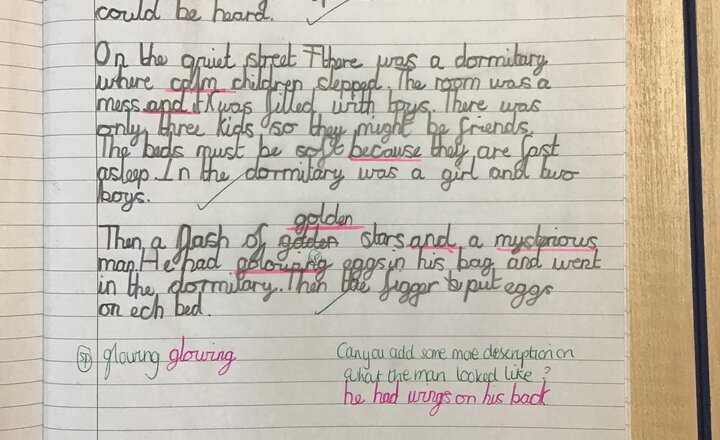 could be heard.
On the quiet street There was a dormitary
where calm children slepped. The room was a
mess and it was filled with boys. There was
only three kids so they might be friends.
The beds must be soft because they are fast
asleep. In the dormitary was a girl and two
boys.
golden
Then a flash of golden stars and a mysterious
man. He had glouring eggs in his bag and went
in the dormitary. Then the figger put eggs
on ech bed.
sp glowing glowing
Can you add some more description on
what the man looked like?
he had wings on his back